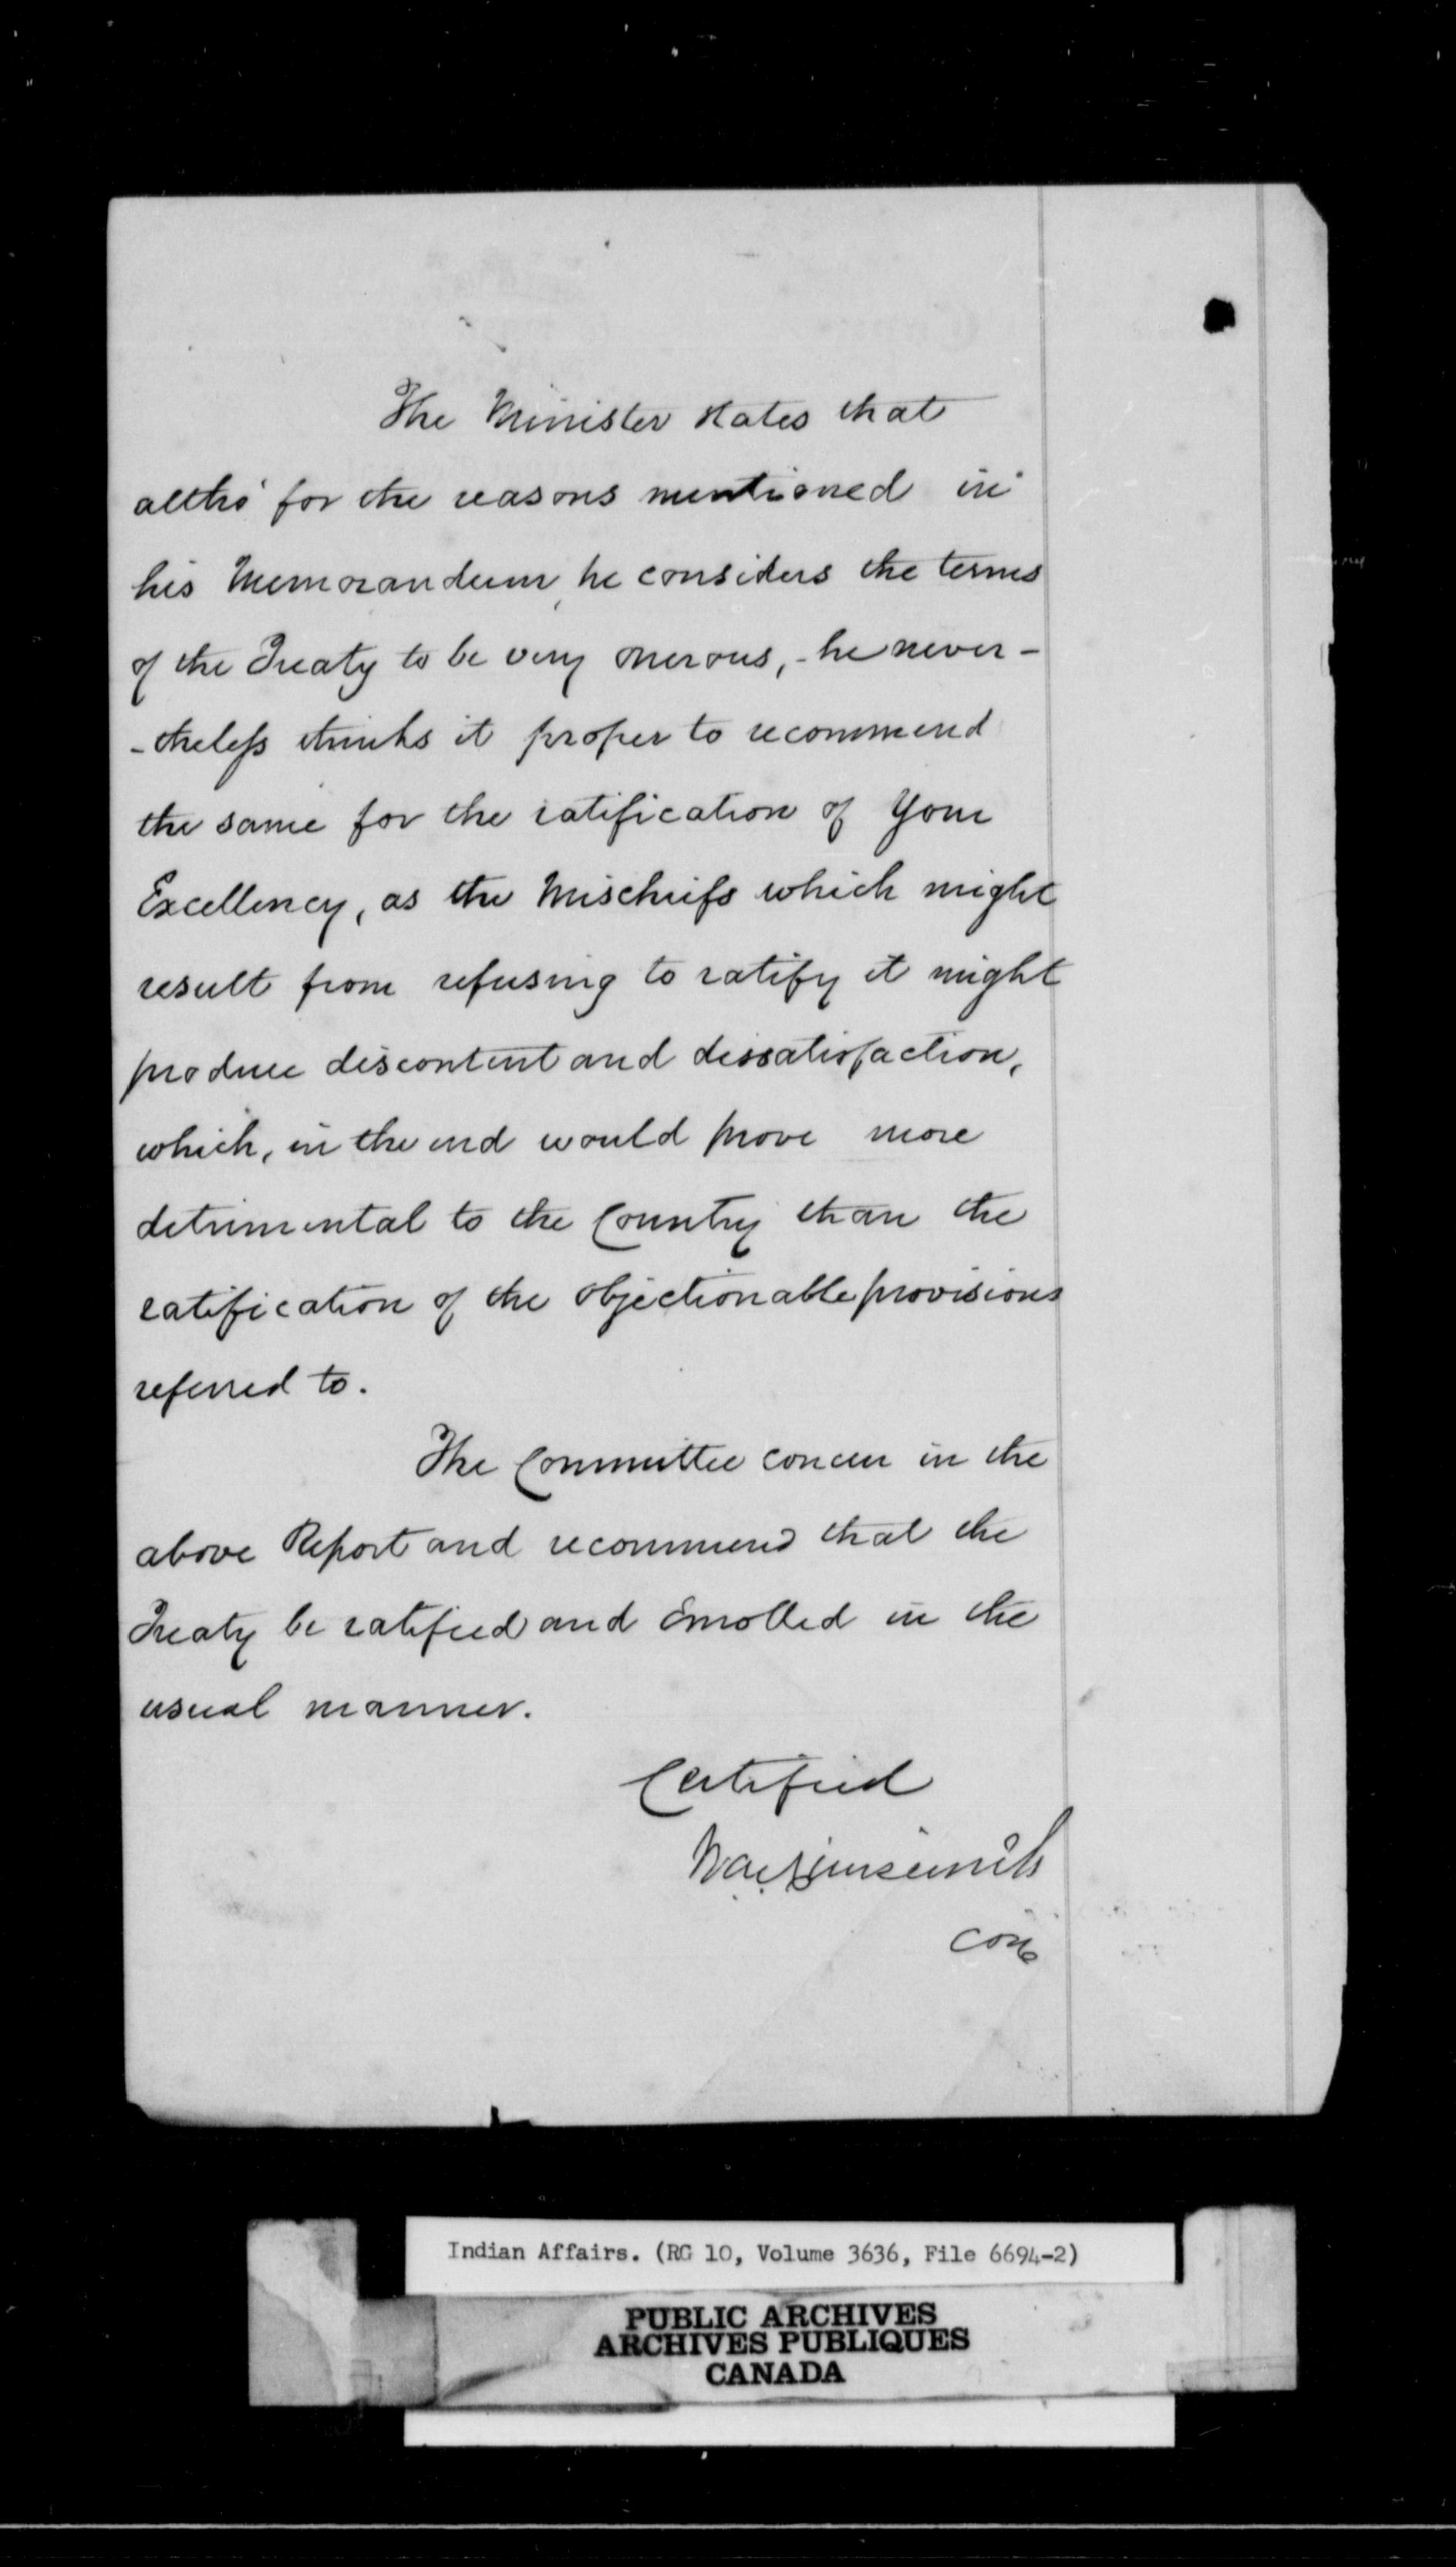 The Minister states that
altho' for the reasons mentioned in
his Memorandum, he considers the terms
of the Treaty to be very onerous, - he never-
-theless thinks it proper to recommend
the same for the ratification of Your
Excellency, as the Mischiefs which might
result from refusing to ratify it might
produce discontent and dissatisfaction,
which, in the end would prove more
detrimental to the Country than the
ratification of the objectionable provisions
referred to.
The Committee concur in the
above Report and recommend that the
Treaty be ratified and Enrolled in the
usual manner.
Certified
Indian Affairs. (RG 10, Volume 3636, File 6694-2)
PUBLIC ARCHIVES
ARCHIVES PUBLIQUES
CANADA